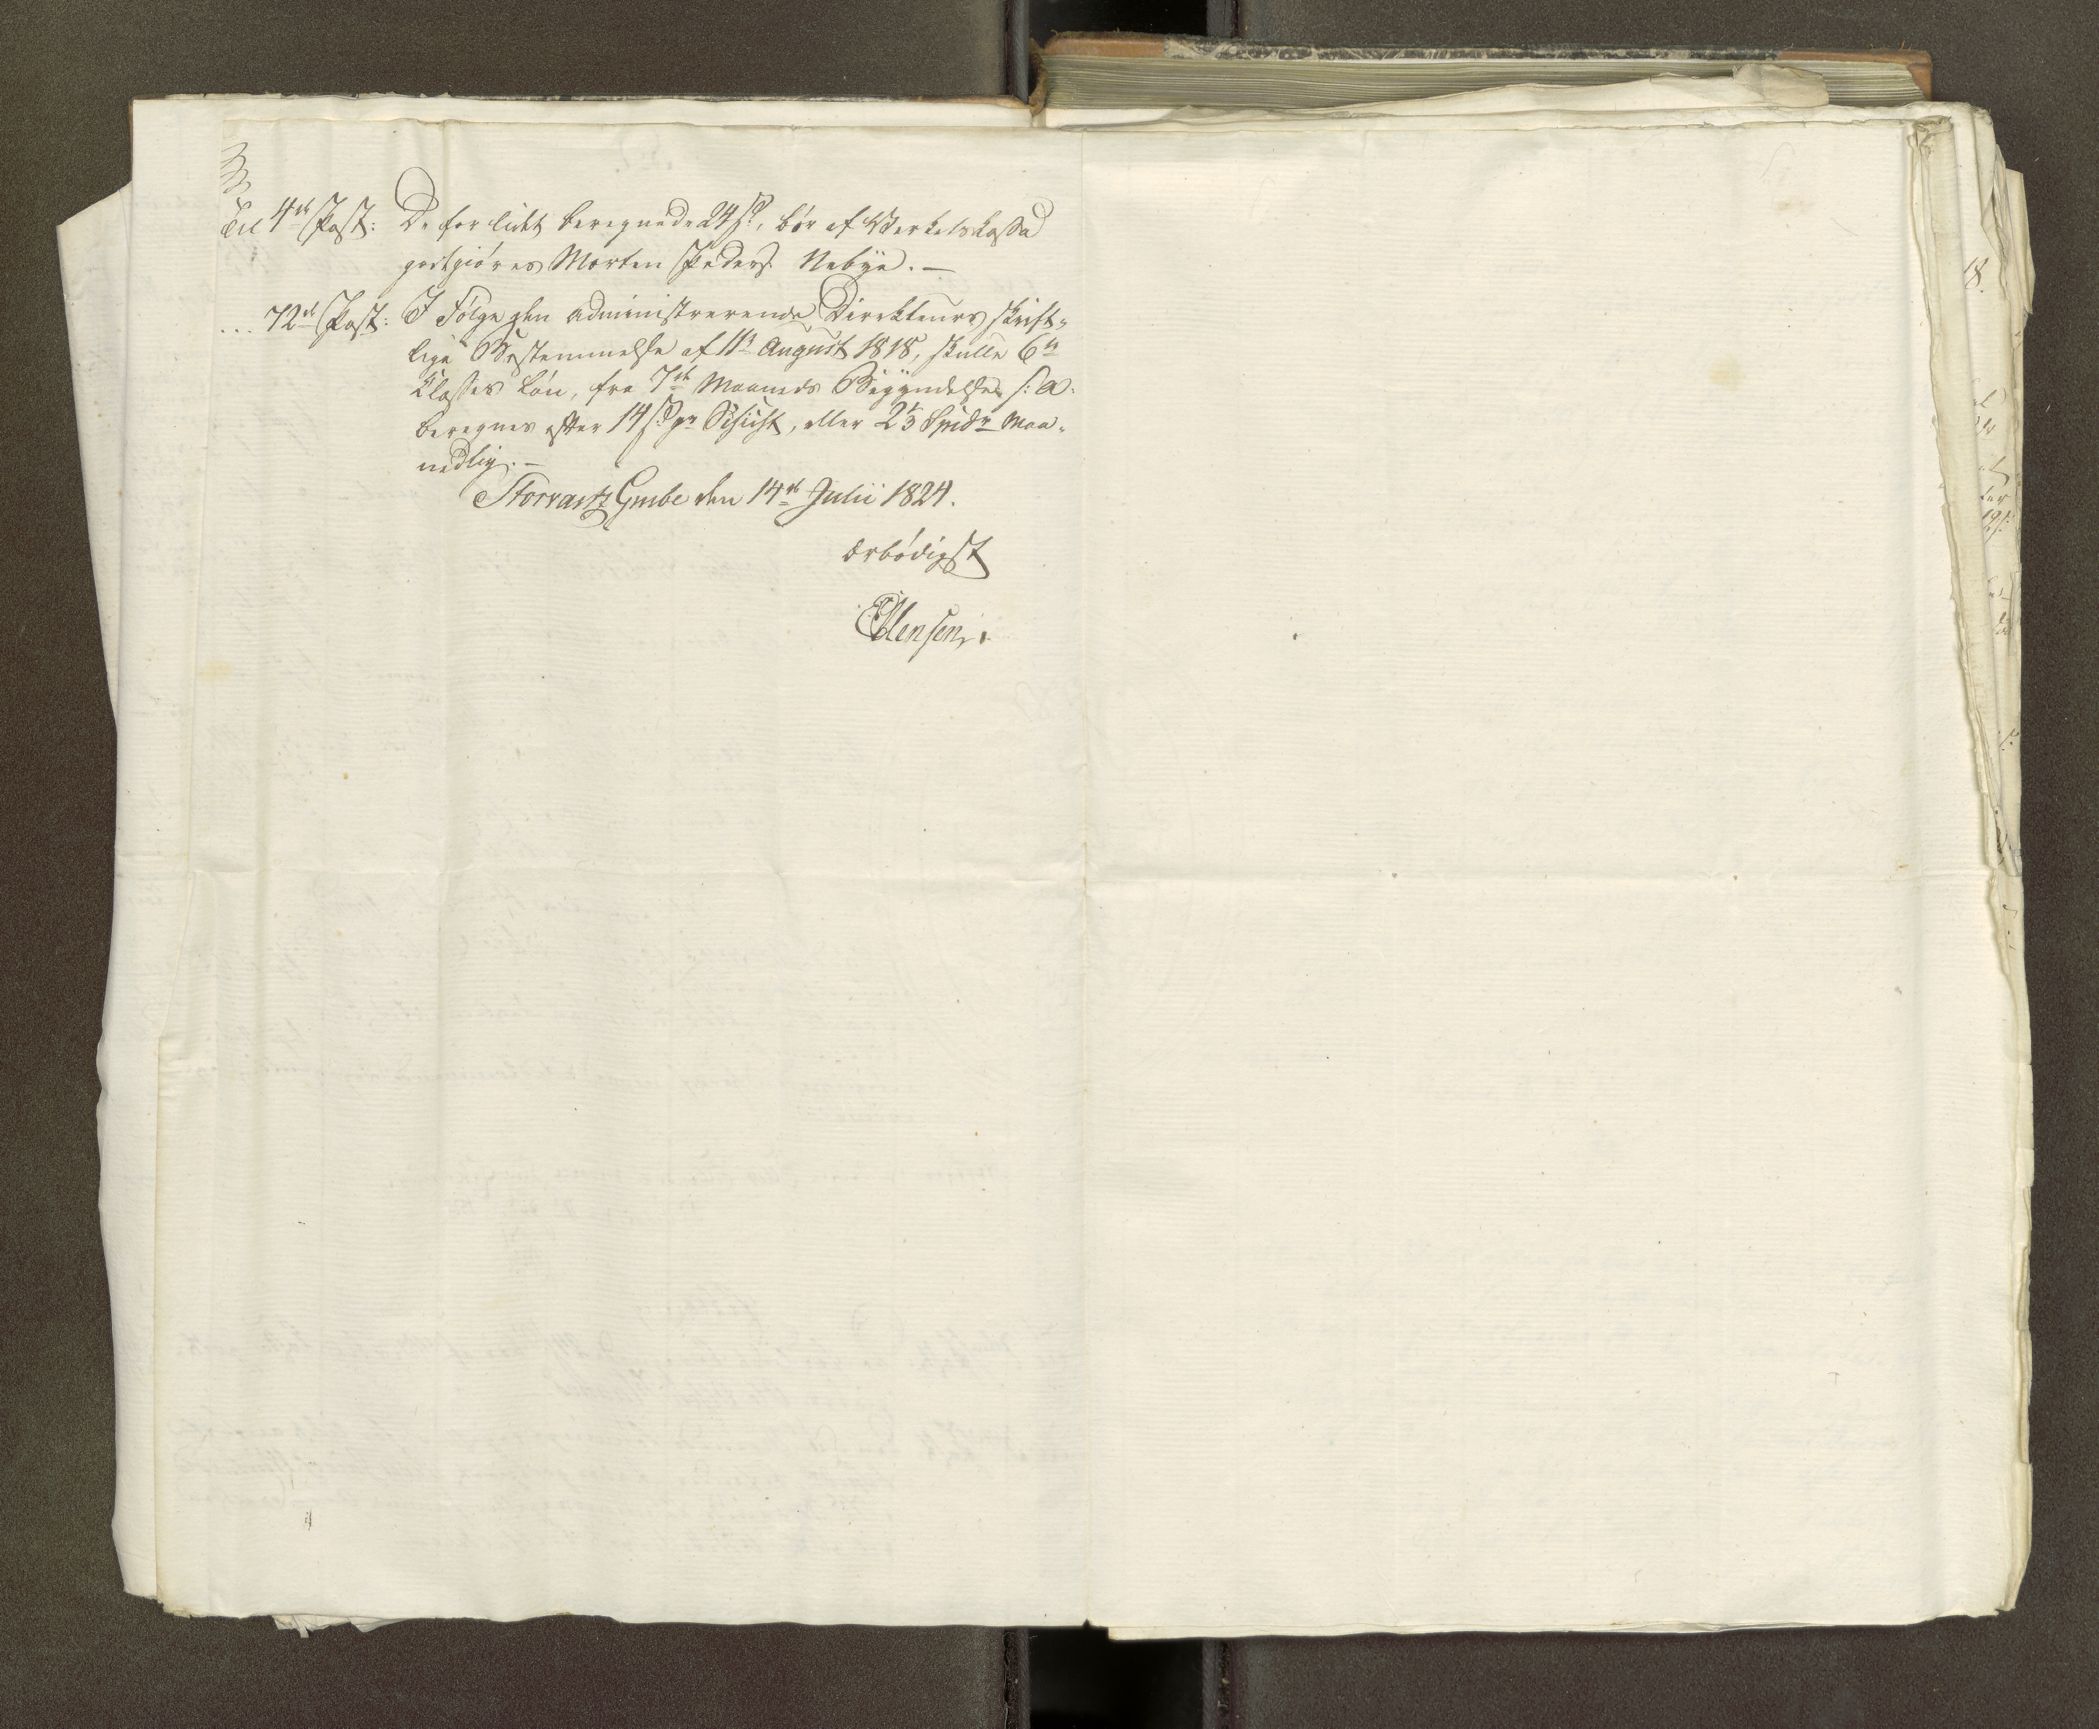 Til 4de Post: De for lidt beregnede 24 s, bør af Værkets Cassa
godtgiøres Morten Peders. Nebye. —
... 72de Post: I Følge den administrerende Direkteurs skrift-
lige Bestemmelse af 11te August 1818, skulle 6te
Classes Løn, fra 7de Maaneds Begyndelse s: A:
beregnes efter 14 s pr Schicht, eller 2 1/3 Spdr maa-
nedlig. —
Storvartz Grube den 14de Julii 1824.
ærbødigst
18.